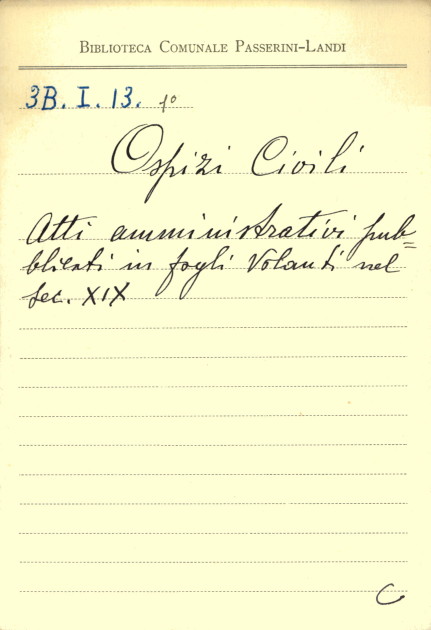 BIBLIOTECA COMUNALE PASSERINI-LANDI
3B. I. 13. 1º
Ospizi Civili
Atti amministrativi pub=
blicati in fogli volanti nel
sec. XIX
C